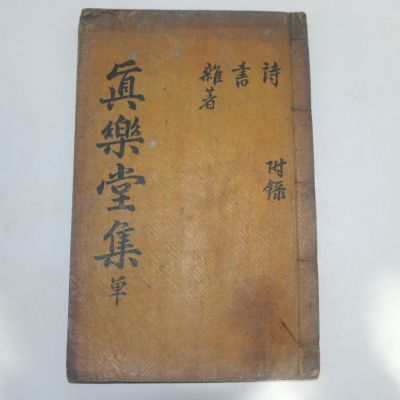 詩
書
雜著
附錄
眞樂堂集 單